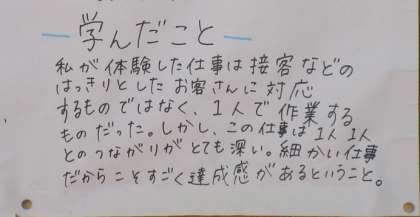 学んだこと
私が体験した仕事は接客などの
はっきりとしたお客さんに対応
するものではなく、1人で作業する
ものだった。しかし、この仕事は1人1人
とのつながりがとても深い。細かい仕事
だからこそすごく達成感があるということ。